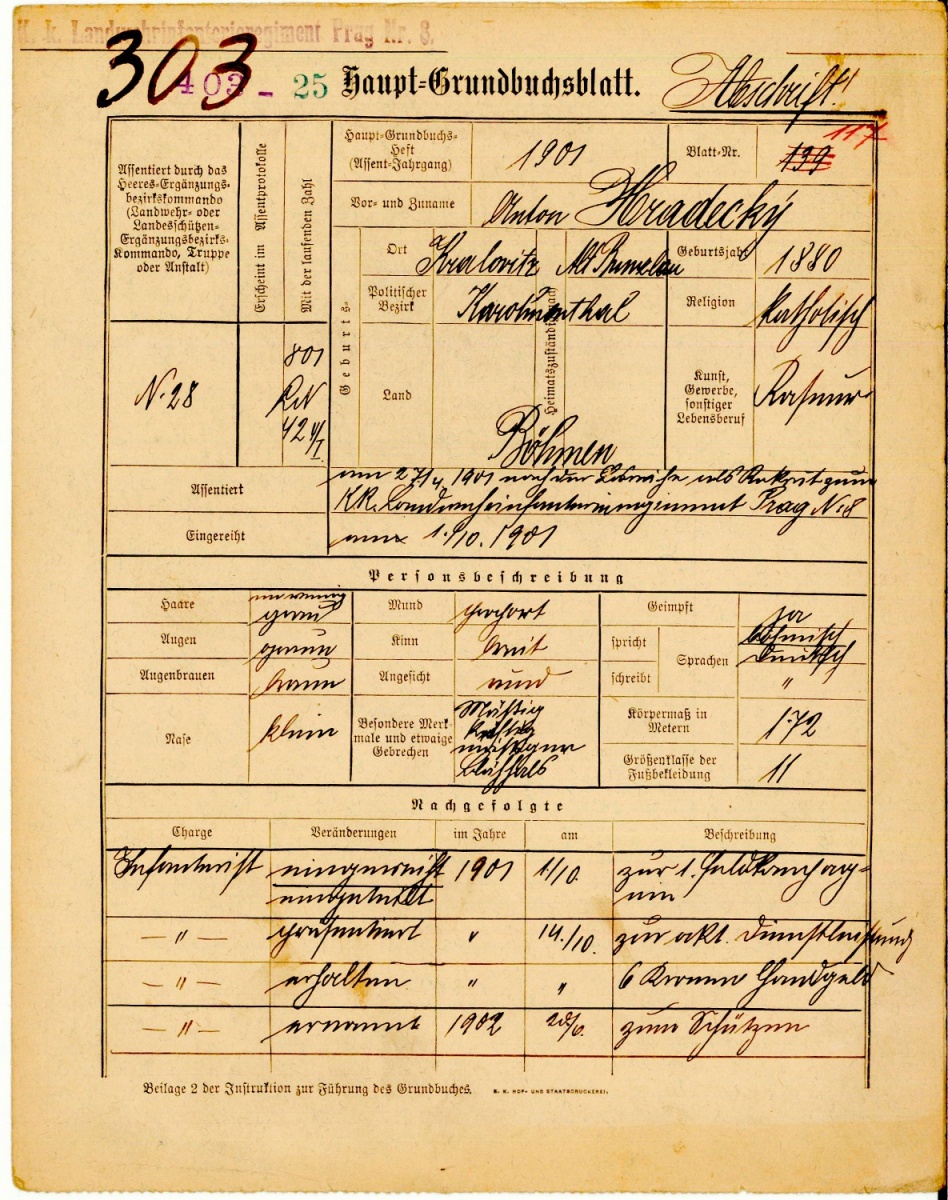 K. k. Landwehrinfanterieregiment Prag Nr. 8.
303
403 - 25 Haupt-Grundbuchsblatt. Abschrift!
117
Assentiert durch das
Heeres-Ergänzungs-
bezirkskommando
(Landwehr- oder
Landesschützen-
Ergänzungsbezirks-
Kommando, Truppe
oder Anstalt)
Erscheint im Assentprotokolle
Mit der laufenden Zahl
Haupt-Grundbuchs-
Heft
(Assent-Jahrgang)
1901
Blatt-Nr.
199
Vor- und Zuname
Anton Hradecký
Geburts-
Ort
Kralovitz
Alt Bunzlau
Geburtsjahr
1880
Politischer
Bezirk
Karolinenthal
Heimatszuständig nach
Religion
katholisch
N. 28
801
42
Land
Böhmen
Kunst,
Gewerbe,
sonstiger
Lebensberuf
Raseur
Assentiert
am 27/4. 1901 nach der Losreihe als Rekrut zum
KK. Landwehrinfanterieregiment Prag N. 8
Eingereiht
am 1./10. 1901
Personsbeschreibung
Haare
grau
Mund
Geimpft
ja
Augen
grau
Kinn
breit
spricht
Sprachen
böhmisch
deutsch
Augenbrauen
braun
Angesicht
rund
schreibt
"
Nase
klein
Besondere Merk-
male und etwaige
Gebrechen
Mäßig
Blähhals
Körpermaß in
Metern
172
Größenklasse der
Fußbekleidung
11
Nachgefolgte
Charge Veränderungen im Jahre am Beschreibung
Infanterist eingereiht 1901 1/10. zur 1. Feldkompag-
eingeteilt nie
— " — präsentiert " 14./10. zur akt. Dienstleistung
— " — erhalten " " 6 Kronen Handgeld
— " — ernannt 1902 zum Schützen
Beilage 2 der Instruktion zur Führung des Grundbuches. K. K. HOF- UND STAATSDRUCKEREI.